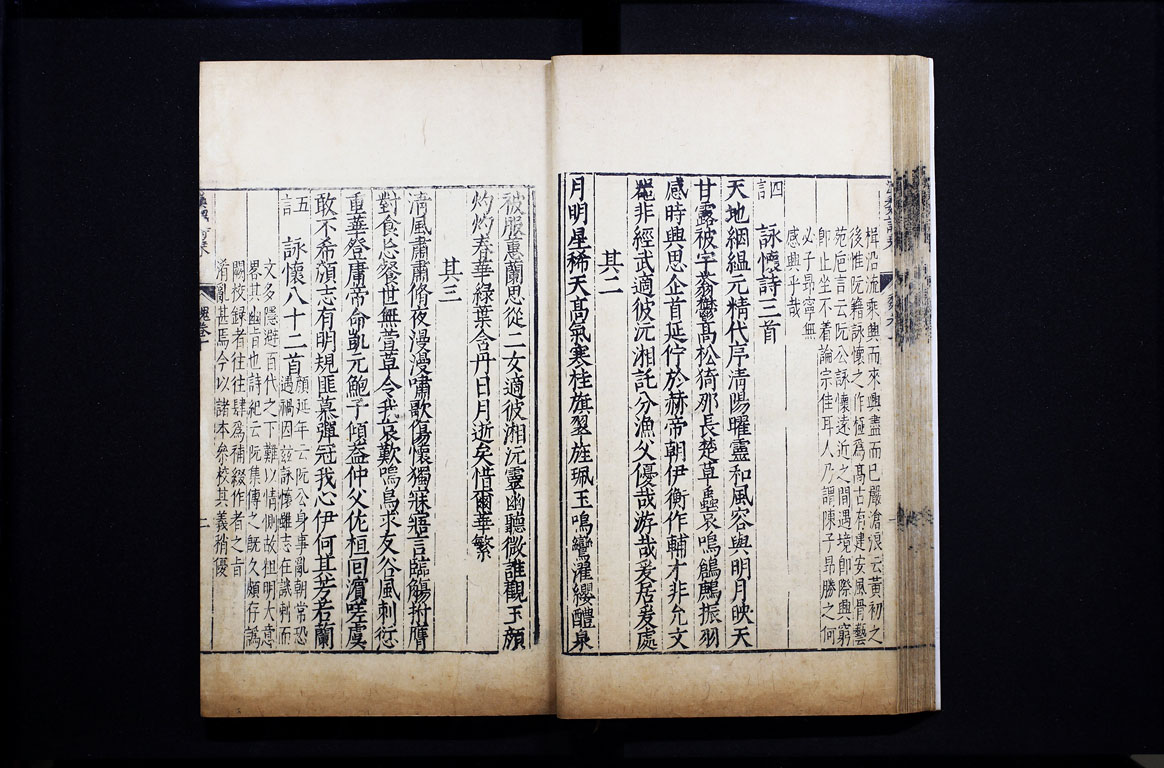 楫沿流乘興而來興盡而已嚴滄浪云黃初之
後惟阮籍詠懷之作極爲高古有建安風骨藝
苑巵言云阮公詠懷遠近之間遇境即際興窮
即止坐不着論宗佳耳人乃謂陳子昻勝之何
必子昻寧無
感興乎哉
四言 詠懷詩三首
天地絪緼元精代序清陽曜靈和風容與明月映天
甘露被宇蓊鬱高松猗那長楚草蟲哀鳴鶬鶊振羽
感時興思企首延佇於赫帝朝伊衡作輔才非允文
噐非經武適彼沅湘託分漁父優哉游哉爰居爰處
其二
月明星稀天高氣寒桂旗翠旌珮玉鳴鸞濯纓醴泉
被服蕙蘭思從二女適彼湘沅靈幽聽微誰觀玉顏
灼灼春華綠葉含丹日月逝矣惜爾華繁
其三
清風肅肅脩夜漫漫嘯歌傷懷獨寐寤言臨觴拊膺
對食忘餐世無萱草令我哀歎鳴鳥求友谷風刺愆
重華登庸帝命凱元鮑子傾葢仲父佐桓回濵嗟虞
敢不希顏志有明規匪慕彈冠我心伊何其芳若蘭
五言 詠懷八十二首 顏延年云阮公身事亂朝常恐
遇禍因玆詠懷雖志在譏刺而
文多隱避百代之下難以情測故粗明大意
畧其幽旨也詩紀云阮集傳之旣久頗存譌
闕校録者往往肆爲補綴作者之旨
淆亂甚焉今以諸本叅校其義稍優